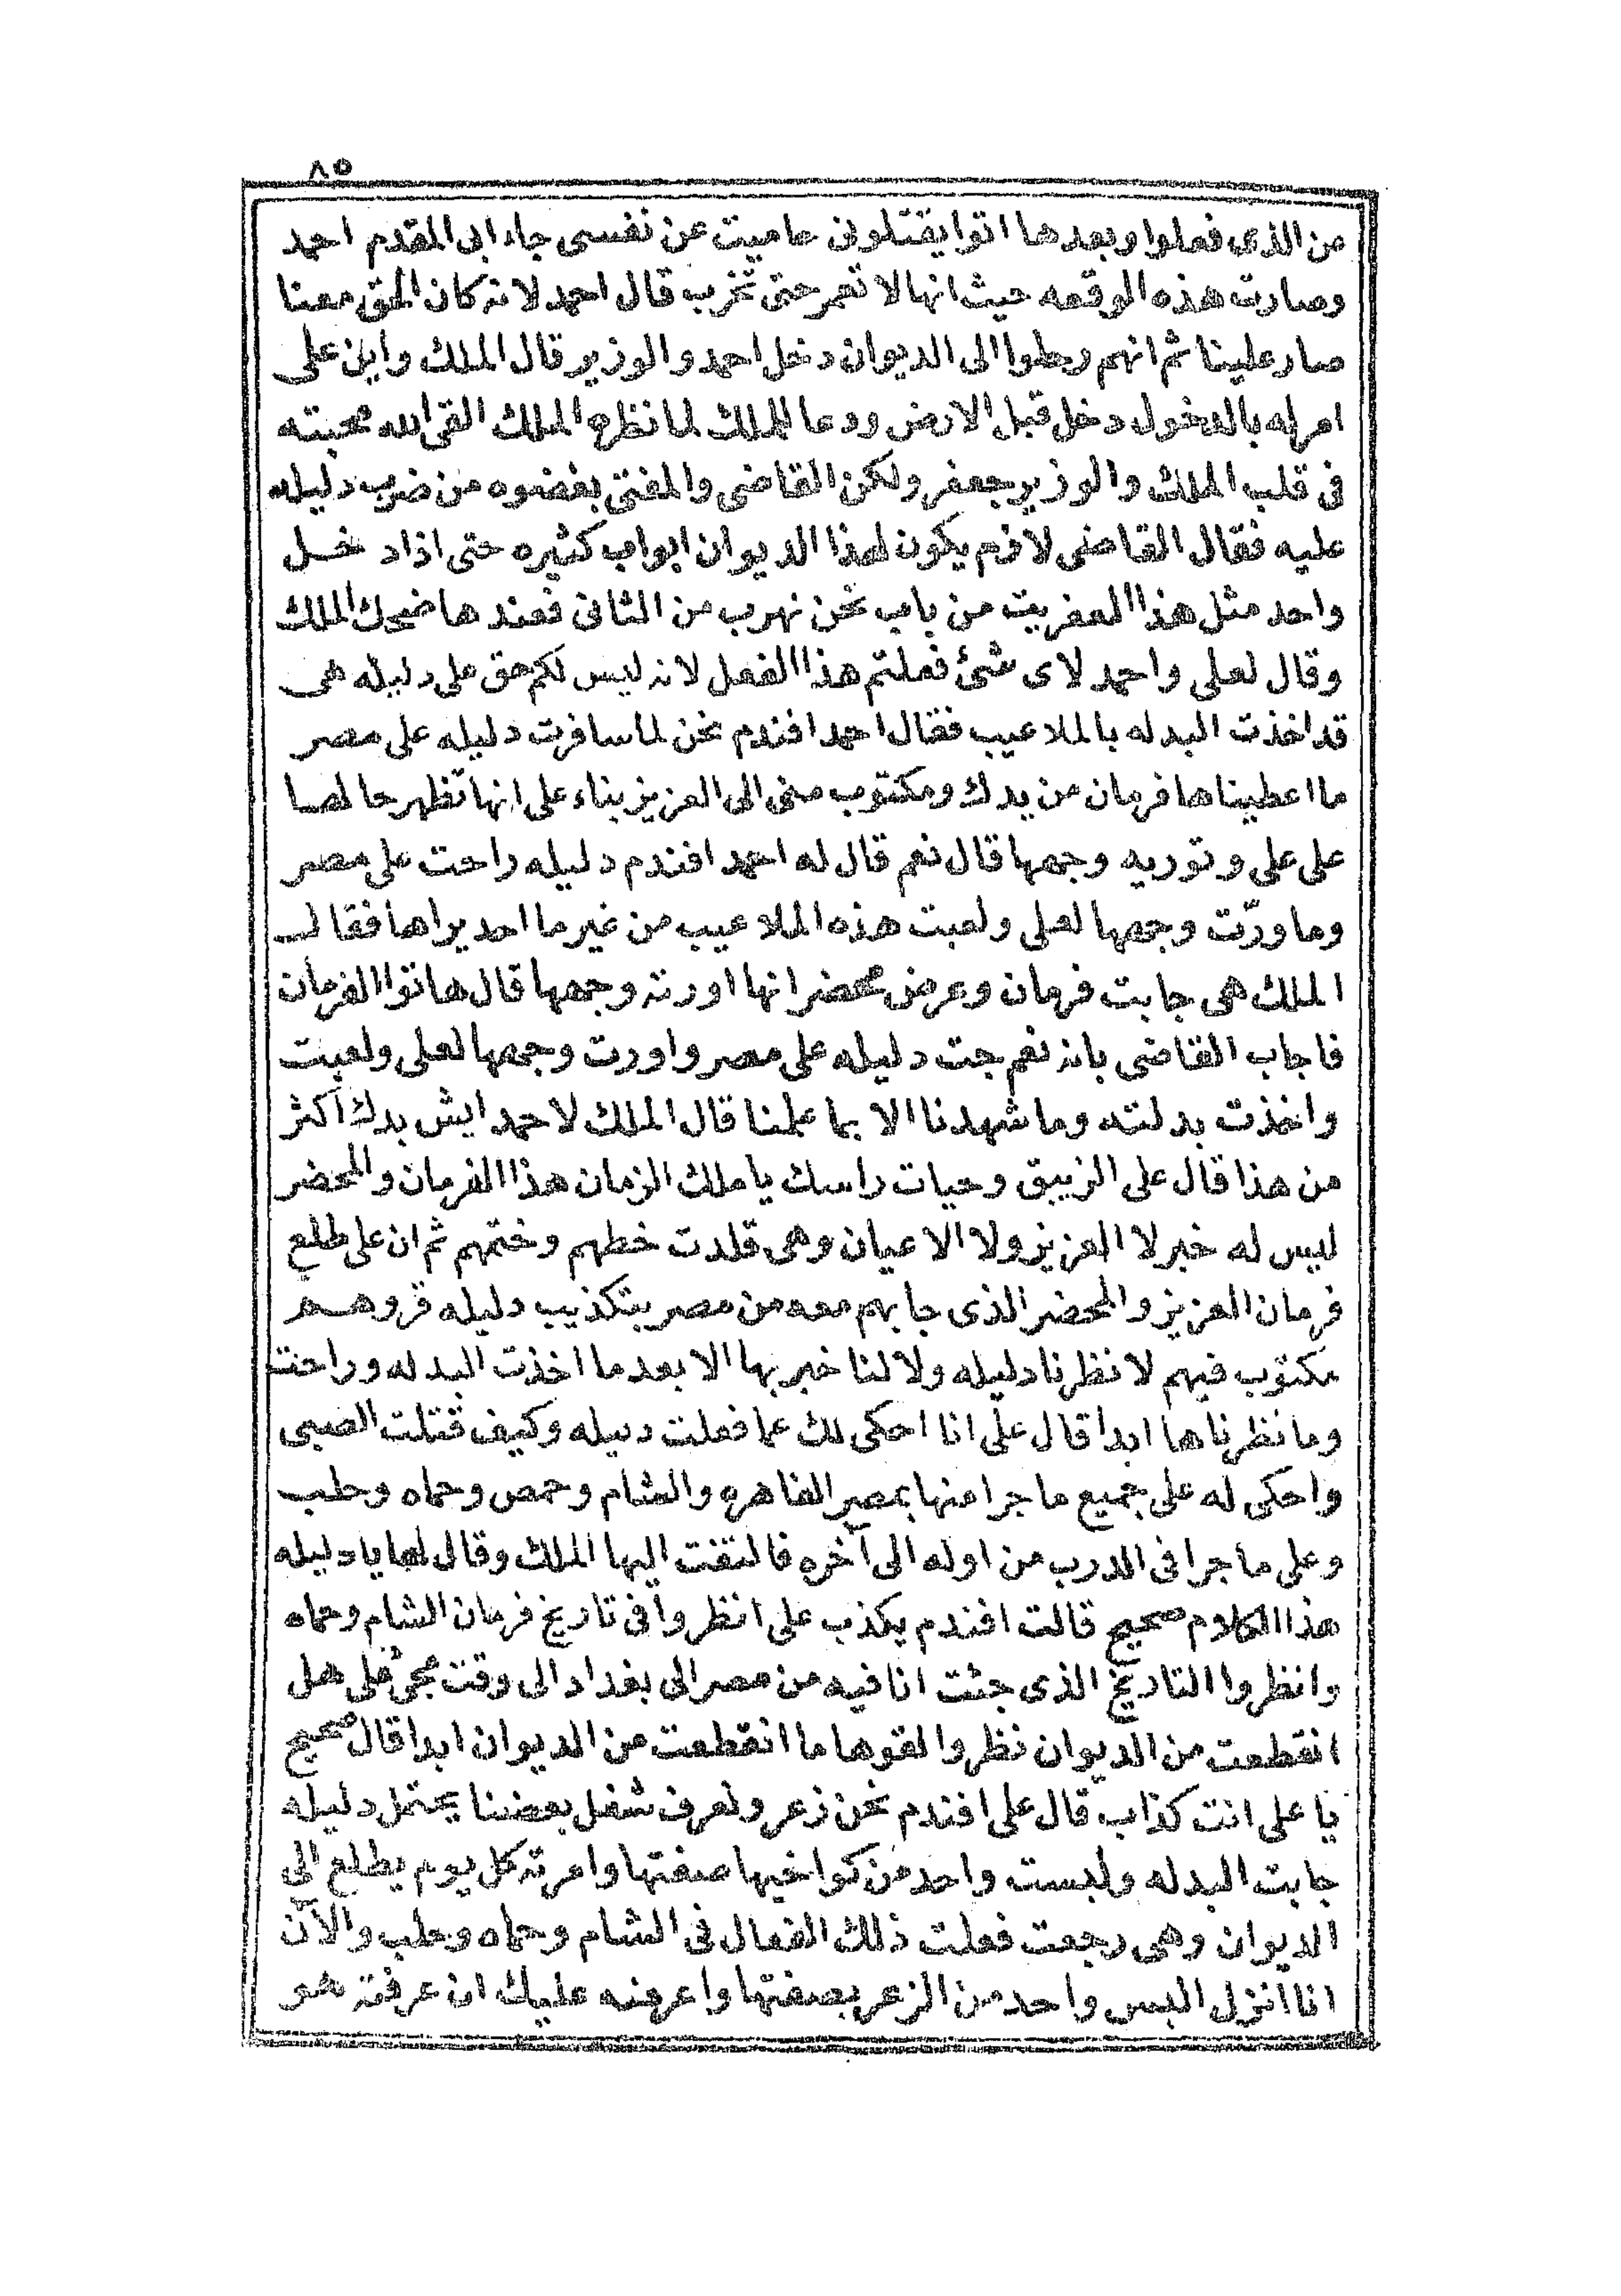 ٨٥
من الذى فعلوا وبعدها اتوا يقتلونى حاميت عن نفسى جاء ابى المقدم احمد
وصارت هذه الوقعه حيث انها لا تعمر حتى تخرب قال احمد لانه كان الحق معنا
صار علينا ثم انهم رحلوا الى الديوان دخل احمد والوزير قال الملك واين على
امر له بالدخول دخل قبل الارض ودعا للملك لما نظره الملك القى الله محبته
فى قلب الملك والوزير جعفر ولكن القاضى والمفتى بغضوه من ضرب دليله
عليه فقال القاضى لازم يكون لهذا الديوان ابواب كثيره حتى اذا دخل
واحد مثل هذا العفريت من باب نحن نهرب من الثانى فعندها ضحك الملك
وقال لعلى واحمد لاى شئ فعلتم هذا الفعل لانه ليس لكم حق على دليله هى
قد اخذت البدله بالملاعيب فقال احمد افندم نحن لما سافرت دليله على مصر
ما اعطيناها فرمان من يدك ومكتوب منى الى العزيز بناء على انها تظهر حالها
على على وتوريه وجهها قال نعم قال له احمد افندم دليله راحت على مصر
وما ورّت وجهها لعلى ولعبت هذه الملاعيب من غير ما احد يراها فقال
الملك هى جابت فرمان وعرض محضر انها اورته وجهها قال هاتوا الفرمان
فاجاب القاضى بانه نعم جت دليله على مصر واورت وجهها لعلى ولعبت
واخذت بدلته وما شهدنا الا بما علمنا قال الملك لاحمد ايش بدك اكثر
من هذا قال على الزيبق وحيات راسك يا ملك الزمان هذا الفرمان والمحضر
ليس له خبر لا العزيز ولا الاعيان وهى قلدت خطهم وختمهم ثم ان على طلع
فرمان العزيز والمحضر الذى جابهم معه من مصر بتكذيب دليله قروهم
مكتوب فيهم لا نظرنا دليله ولا لنا خبر بها الا بعد ما اخذت البدله وراحت
وما نظرناها ابدا قال على انا احكى لك عما فعلت دليله وكيف قتلت الصبى
واحكى له على جميع ما جرا منها بمصر القاهره والشام وحمص وحماه وحلب
وعلى ما جرا فى الدرب من اوله الى آخره فالتفت اليها الملك وقال لها يا دليله
هذا الكلام صحيح قالت افندم يكذب على انظروا فى تاريخ فرمان الشام وحماه
وانظروا التاريخ الذى جئت انا فيه من مصر الى بغداد الى وقت مجئ على هل
انقطعت من الديوان نظروا لقوها ما انقطعت من الديوان ابدا قال صحيح
يا على انت كذاب قال على افندم نحن زعر ونعرف شغل بعضنا يحتمل دليله
جابت البدله ولبست واحد من كواخيها صفتها وامرته كل يوم يطلع الى
الديوان وهى رجعت فعلت ذلك الفعال فى الشام وحماه وحلب والآن
انا انزل البس واحد من الزعر بصفتها واعرضه عليك ان عرفته هو